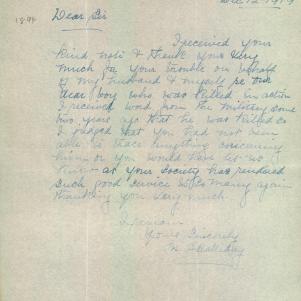 Dec 12 1919
Dear Sir
I received your
kind note & thank you very
much for your trouble on behalf
of my husband & myself re our
dear boy who was killed in action
I received word from the military some
two years ago that he was killed so
I judged that you had not been
able to trace anything concerning
him or you would have let us
know as your society has rendered
such good service to so many again
thanking you very much
I remain
Yours Sincerely
M Halliday